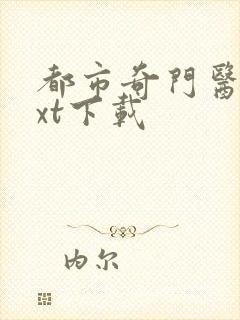 都市奇門醫
xt下載
内尔